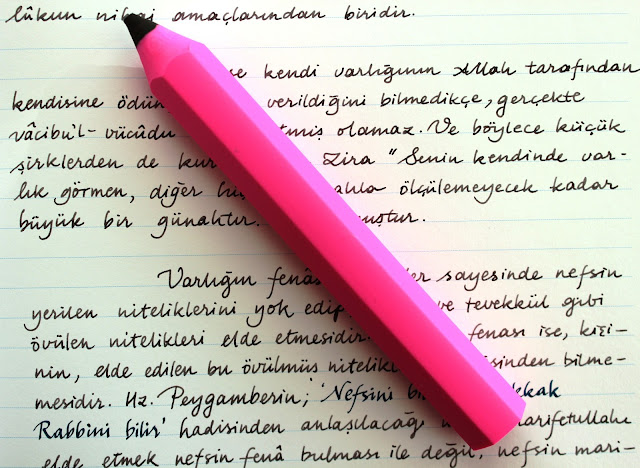 lûkun nihai amaçlarından biridir.
kendi varlığının Allah tarafından
kendisine ödün verildiğini bilmedikçe, gerçekte
vâcibu'l-vücûdu tmiş olamaz. Ve böylece küçük
şirklerden de kur Zira "Senin kendinde var-
lık görmen, diğer hiç ahla ölçülemeyecek kadar
büyük bir günahtır. muştur.
Varlığın fenâs ler sayesinde nefsin
yerilen niteliklerini yok edip ve tevekkül gibi
övülen nitelikleri elde etmesidir. fenası ise, kişi-
nin, elde edilen bu övülmüş nitelikl isinden bilme-
mesidir. Hz. Peygamberin; 'Nefsini bi kkak
Rabbini bilir' hadisinden anlaşılacağı marifetullahı
elde etmek nefsin fenâ bulması ile değil, nefsin mari-